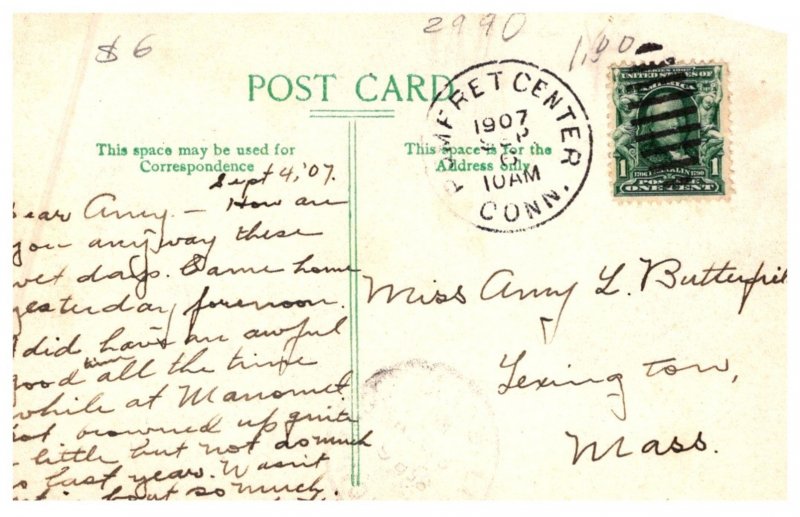 $6
2990
1.00
POST CARD
This space may be used for
Correspondence
This space is for the
Address only
POMFRET CENTER
1907
SEP
6
10 AM
CONN.
UNITED STATES OF
AMERICA
1 1
FRANKLIN
POSTAGE
ONE CENT
Sept 4, '07.
ear Amy — How are
you anyway these
wet days. Came home
yesterday forenoon.
did have an awful
good time all the time
while at Manomet
Got browned up quite
little but not so much
as last year. Wasn't
so much.
Miss Amy L. Butterfiel
Lexington,
Mass.